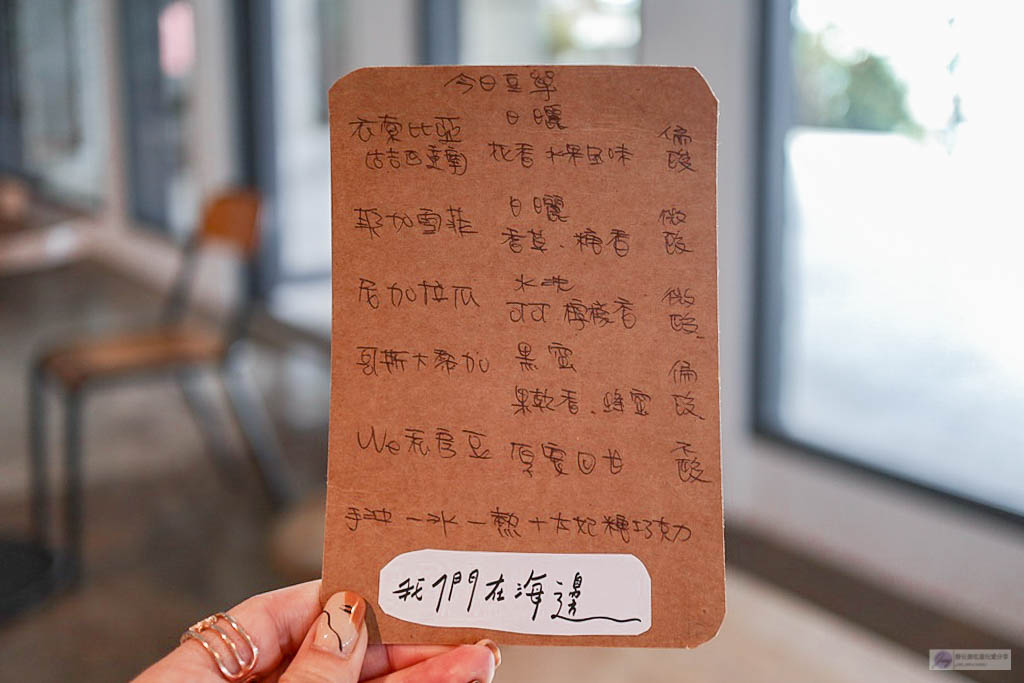 今日豆單
衣索比亞 日曬 偏
古吉巴重南 花香 水果風味 酸
耶加雪菲 日曬 微
香草、糖香 酸
尼加拉瓜 水洗 微
可可 檸檬香 酸
哥斯大黎加 黑蜜 偏
果乾香、蜂蜜 酸
We私房豆 厚實回甘 不酸
手沖 一冰一熱+太妃糖巧克力
我們在海邊